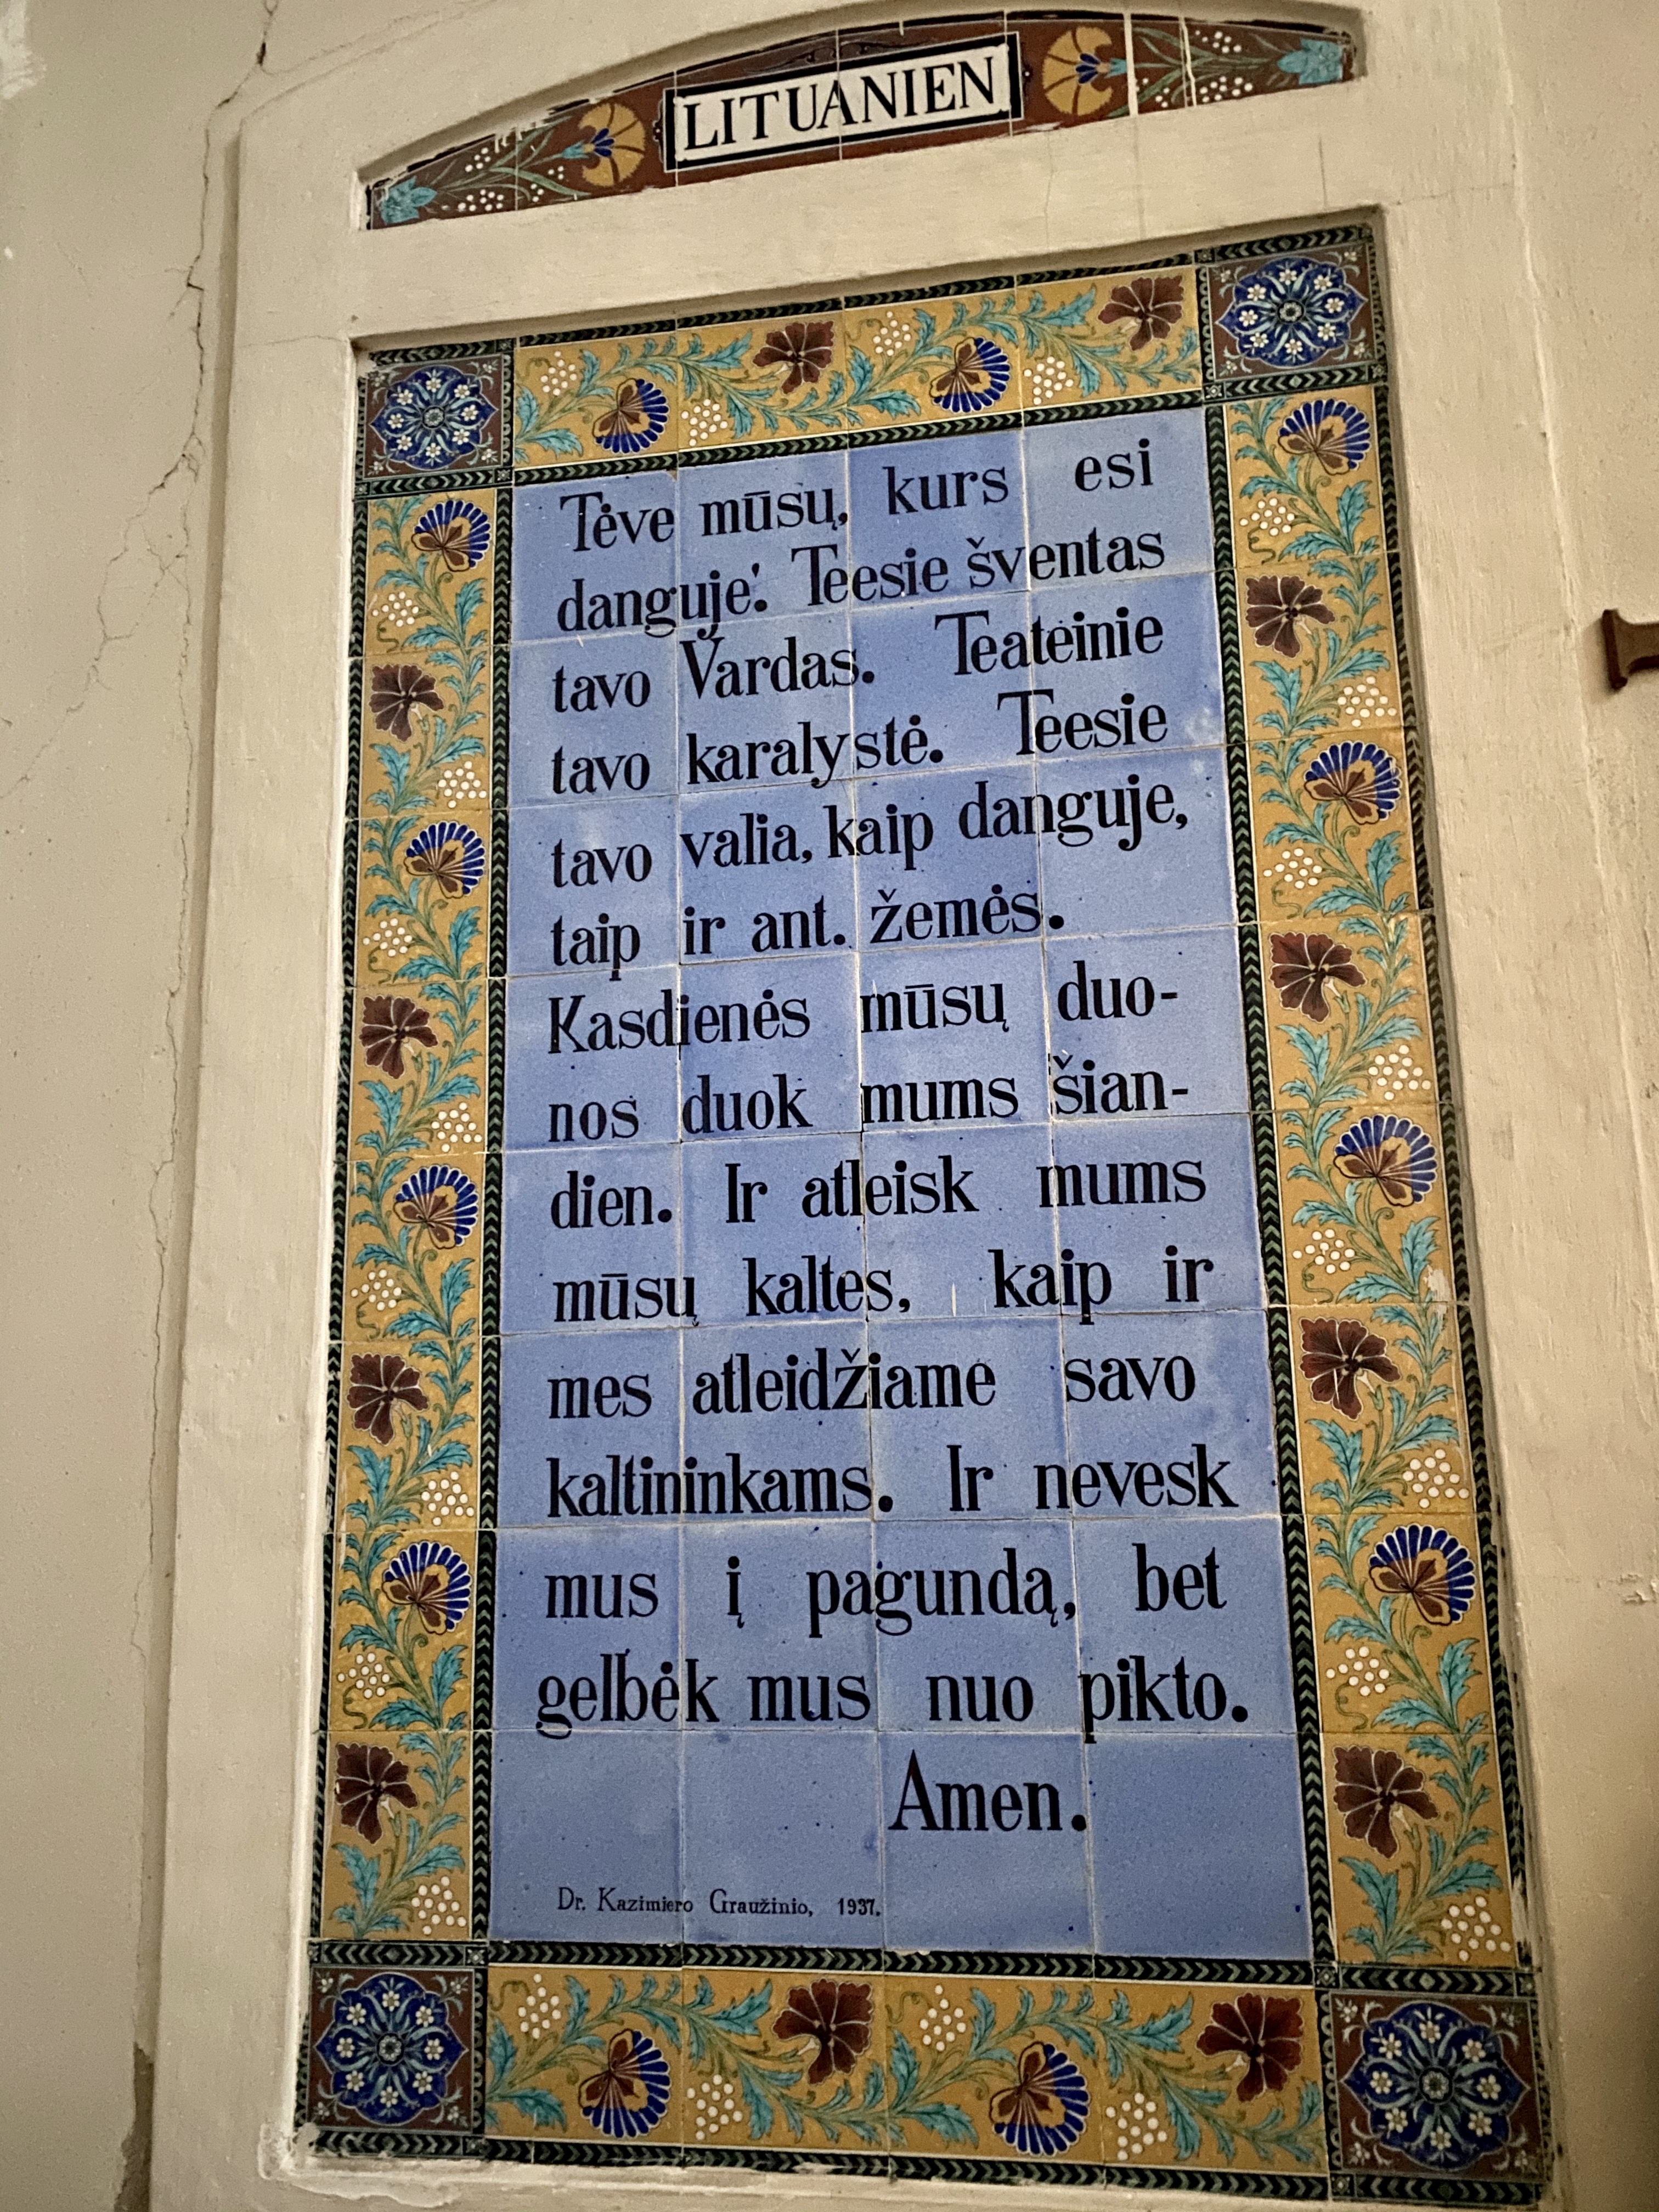 LITUANIEN
Tėve mūsų, kurs esi
danguje'. Teesie šventas
tavo Vardas. Teateinie
tavo karalystė. Teesie
tavo valia, kaip danguje,
taip ir ant. žemės.
Kasdienės mūsų duo-
nos duok mums šian-
dien. Ir atleisk mums
mūsų kaltes, kaip ir
mes atleidžiame savo
kaltininkams. Ir nevesk
mus į pagundą, bet
gelbėk mus nuo pikto.
Amen.
Dr. Kazimiero Graužinio, 1937.